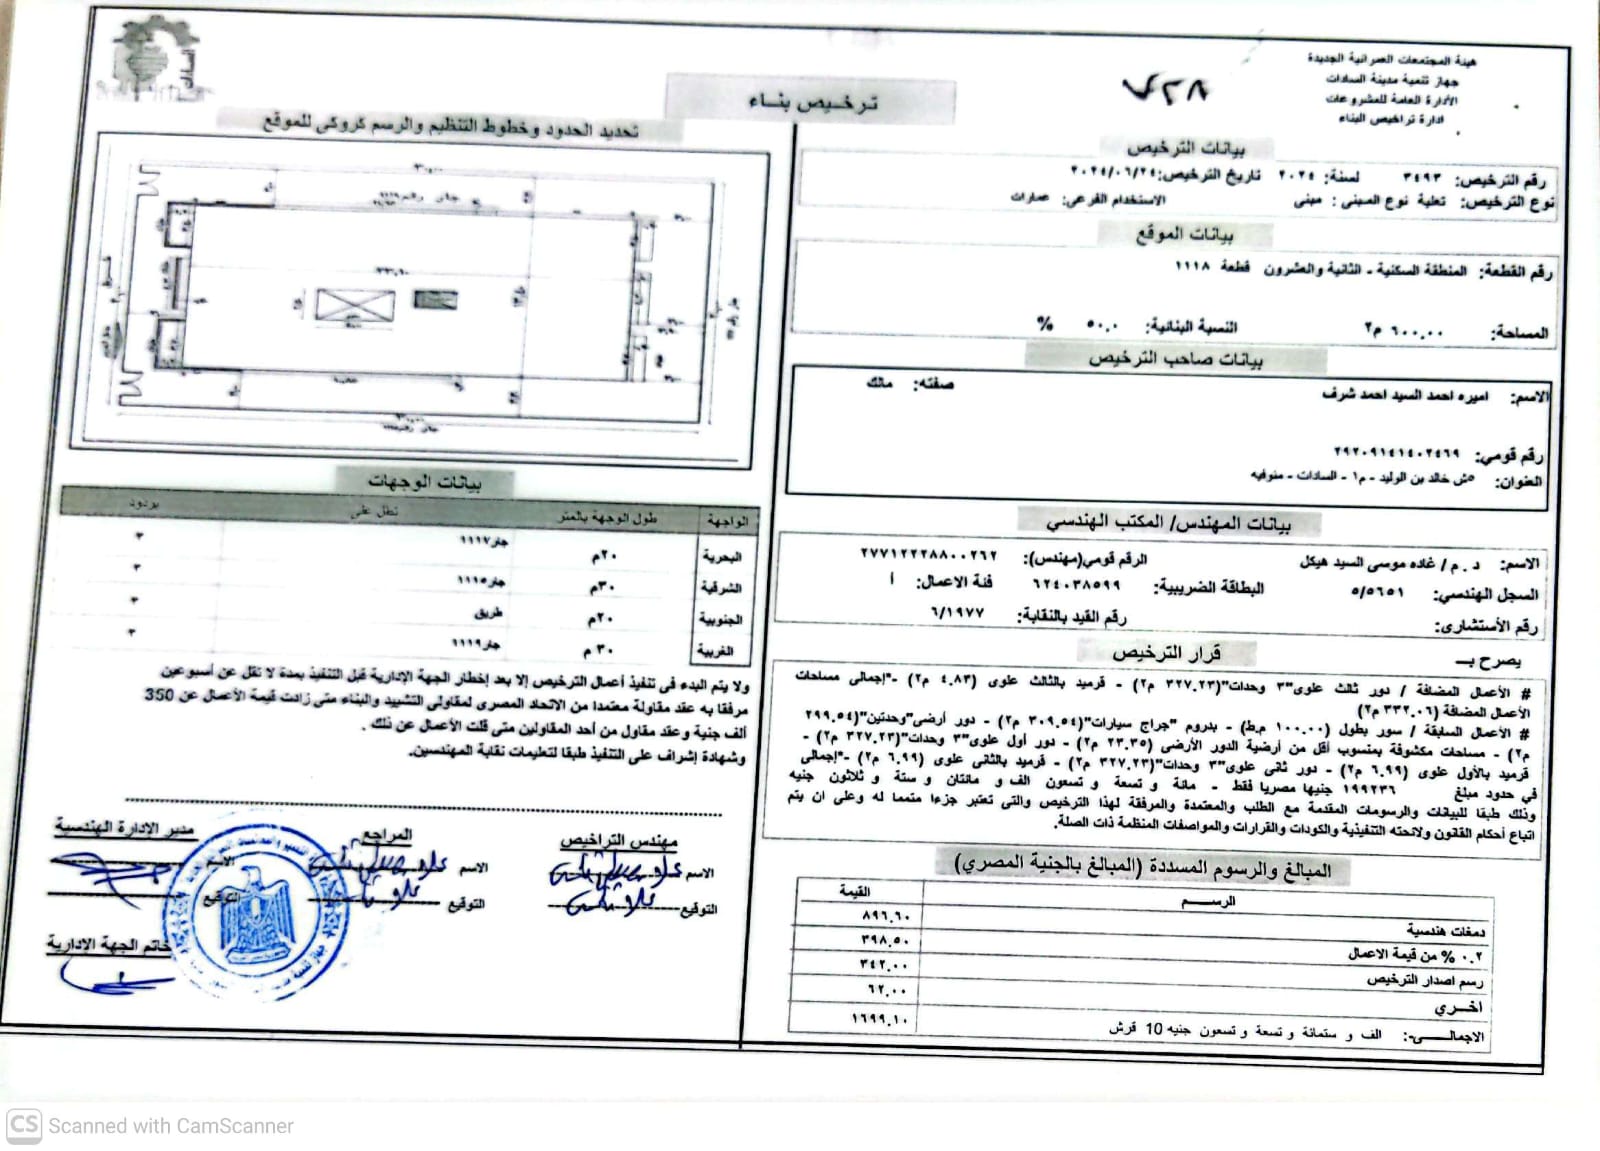 هيئة المجتمعات العمرانية الجديدة
جهاز تنمية مدينة السادات
الأدارة العامة للمشروعات
ادارة تراخيص البناء
ترخيص بناء
السادات
بيانات الترخيص
رقم الترخيص: ٣٤٩٣ لسنة: ٢٠٢٤ تاريخ الترخيص: ٢٠٢٤/٠٦/٢٤
نوع الترخيص: تعلية نوع المبنى : مبنى الاستخدام الفرعى: عمارات
بيانات الموقع
رقم القطعة: المنطقة السكنية - الثانية والعشرون قطعة ١١١٨
المساحة: ٦٠٠.٠٠ م٢ النسبة البنائية: ٥٠.٠ %
بيانات صاحب الترخيص
الاسم: اميره احمد السيد احمد شرف صفته: مالك
رقم قومي: ٢٩٢٠٩١٤١٤٠٢٤٦٩
العنوان: ٥ش خالد بن الوليد - م١ - السادات - منوفيه
بيانات المهندس/ المكتب الهندسي
الاسم: د . م / غاده موسى السيد هيكل الرقم قومي(مهندس): ٢٧٧١٢٢٢٨٨٠٠٢٦٢
السجل الهندسي: ٥/٥٦٥١ البطاقة الضريبية: ٦٢٤٠٣٨٥٩٩ فئة الاعمال: أ
رقم الأستشارى: رقم القيد بالنقابة: ٦/١٩٧٧
يصرح بـ قرار الترخيص
# الأعمال المضافة / دور ثالث علوى"٣ وحدات"(٣٢٧.٢٣ م٢) - قرميد بالثالث علوى (٤.٨٣ م٢) -*إجمالى مساحات
الأعمال المضافة (٣٣٢.٠٦ م٢)
# الأعمال السابقة / سور بطول (١٠٠.٠٠ م.ط) - بدروم "جراج سيارات"(٣٠٩.٥٤ م٢) - دور أرضى"وحدتين"(٢٩٩.٥٤
م٢) - مساحات مكشوفة بمنسوب أقل من أرضية الدور الأرضى (٢٣.٣٥ م٢) - دور أول علوى"٣ وحدات"(٣٢٧.٢٣ م٢) -
قرميد بالأول علوى (٦.٩٩ م٢) - دور ثانى علوى"٣ وحدات"(٣٢٧.٢٣ م٢) - قرميد بالثانى علوى (٦.٩٩ م٢) -*إجمالى
في حدود مبلغ ١٩٩٢٣٦ جنيها مصريا فقط - مائة و تسعة و تسعون الف و مائتان و ستة و ثلاثون جنيه
وذلك طبقا للبيانات والرسومات المقدمة مع الطلب والمعتمدة والمرفقة لهذا الترخيص والتى تعتبر جزءا متمما له وعلى ان يتم
اتباع أحكام القانون ولائحته التنفيذية والكودات والقرارات والمواصفات المنظمة ذات الصلة.
المبالغ والرسوم المسددة (المبالغ بالجنية المصري)
الرســـم القيمة
دمغات هندسية ٨٩٦.٦٠
٠.٢ % من قيمة الاعمال ٣٩٨.٥٠
رسم اصدار الترخيص ٣٤٢.٠٠
أخـــري ٦٢.٠٠
الاجمالـــى:- الف و ستمائة و تسعة و تسعون جنيه 10 قرش ١٦٩٩.١٠
تحديد الحدود وخطوط التنظيم والرسم كروكى للموقع
بيانات الوجهات
الواجهة طول الوجهة بالمتر تطل على بردود
البحرية ٢٠م جار١١١٧ ٣
الشرقية ٣٠م جار١١١٥ ٣
الجنوبية ٢٠م طريق ٣
الغربية ٣٠ م جار١١١٩ ٣
ولا يتم البدء فى تنفيذ أعمال الترخيص إلا بعد إخطار الجهة الإدارية قبل التنفيذ بمدة لا تقل عن أسبوعين
مرفقا به عقد مقاولة معتمدا من الاتحاد المصرى لمقاولى التشييد والبناء متى زادت قيمة الأعمال عن 350
ألف جنية وعقد مقاول من أحد المقاولين متى قلت الأعمال عن ذلك .
وشهادة إشراف على التنفيذ طبقا لتعليمات نقابة المهندسين.
مهندس التراخيص المراجع مدير الادارة الهندسية
الاسم الاسم الاسم
التوقيع التوقيع التوقيع
خاتم الجهة الإدارية
CS Scanned with CamScanner